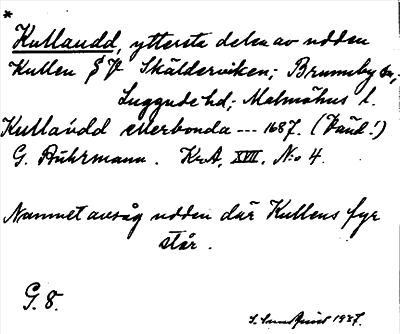 *
Kullaudd, yttersta delen av udden
Kullen S V Skälderviken; Brunnby sn,
Luggude hd; Malmöhus l.
Kullaudd ellerbonda --- 1687.
G. Buhrmann. KrA, XVII, N:o 4.
Namnet avsåg udden där Kullens fyr
står.
G. 8.
1937.